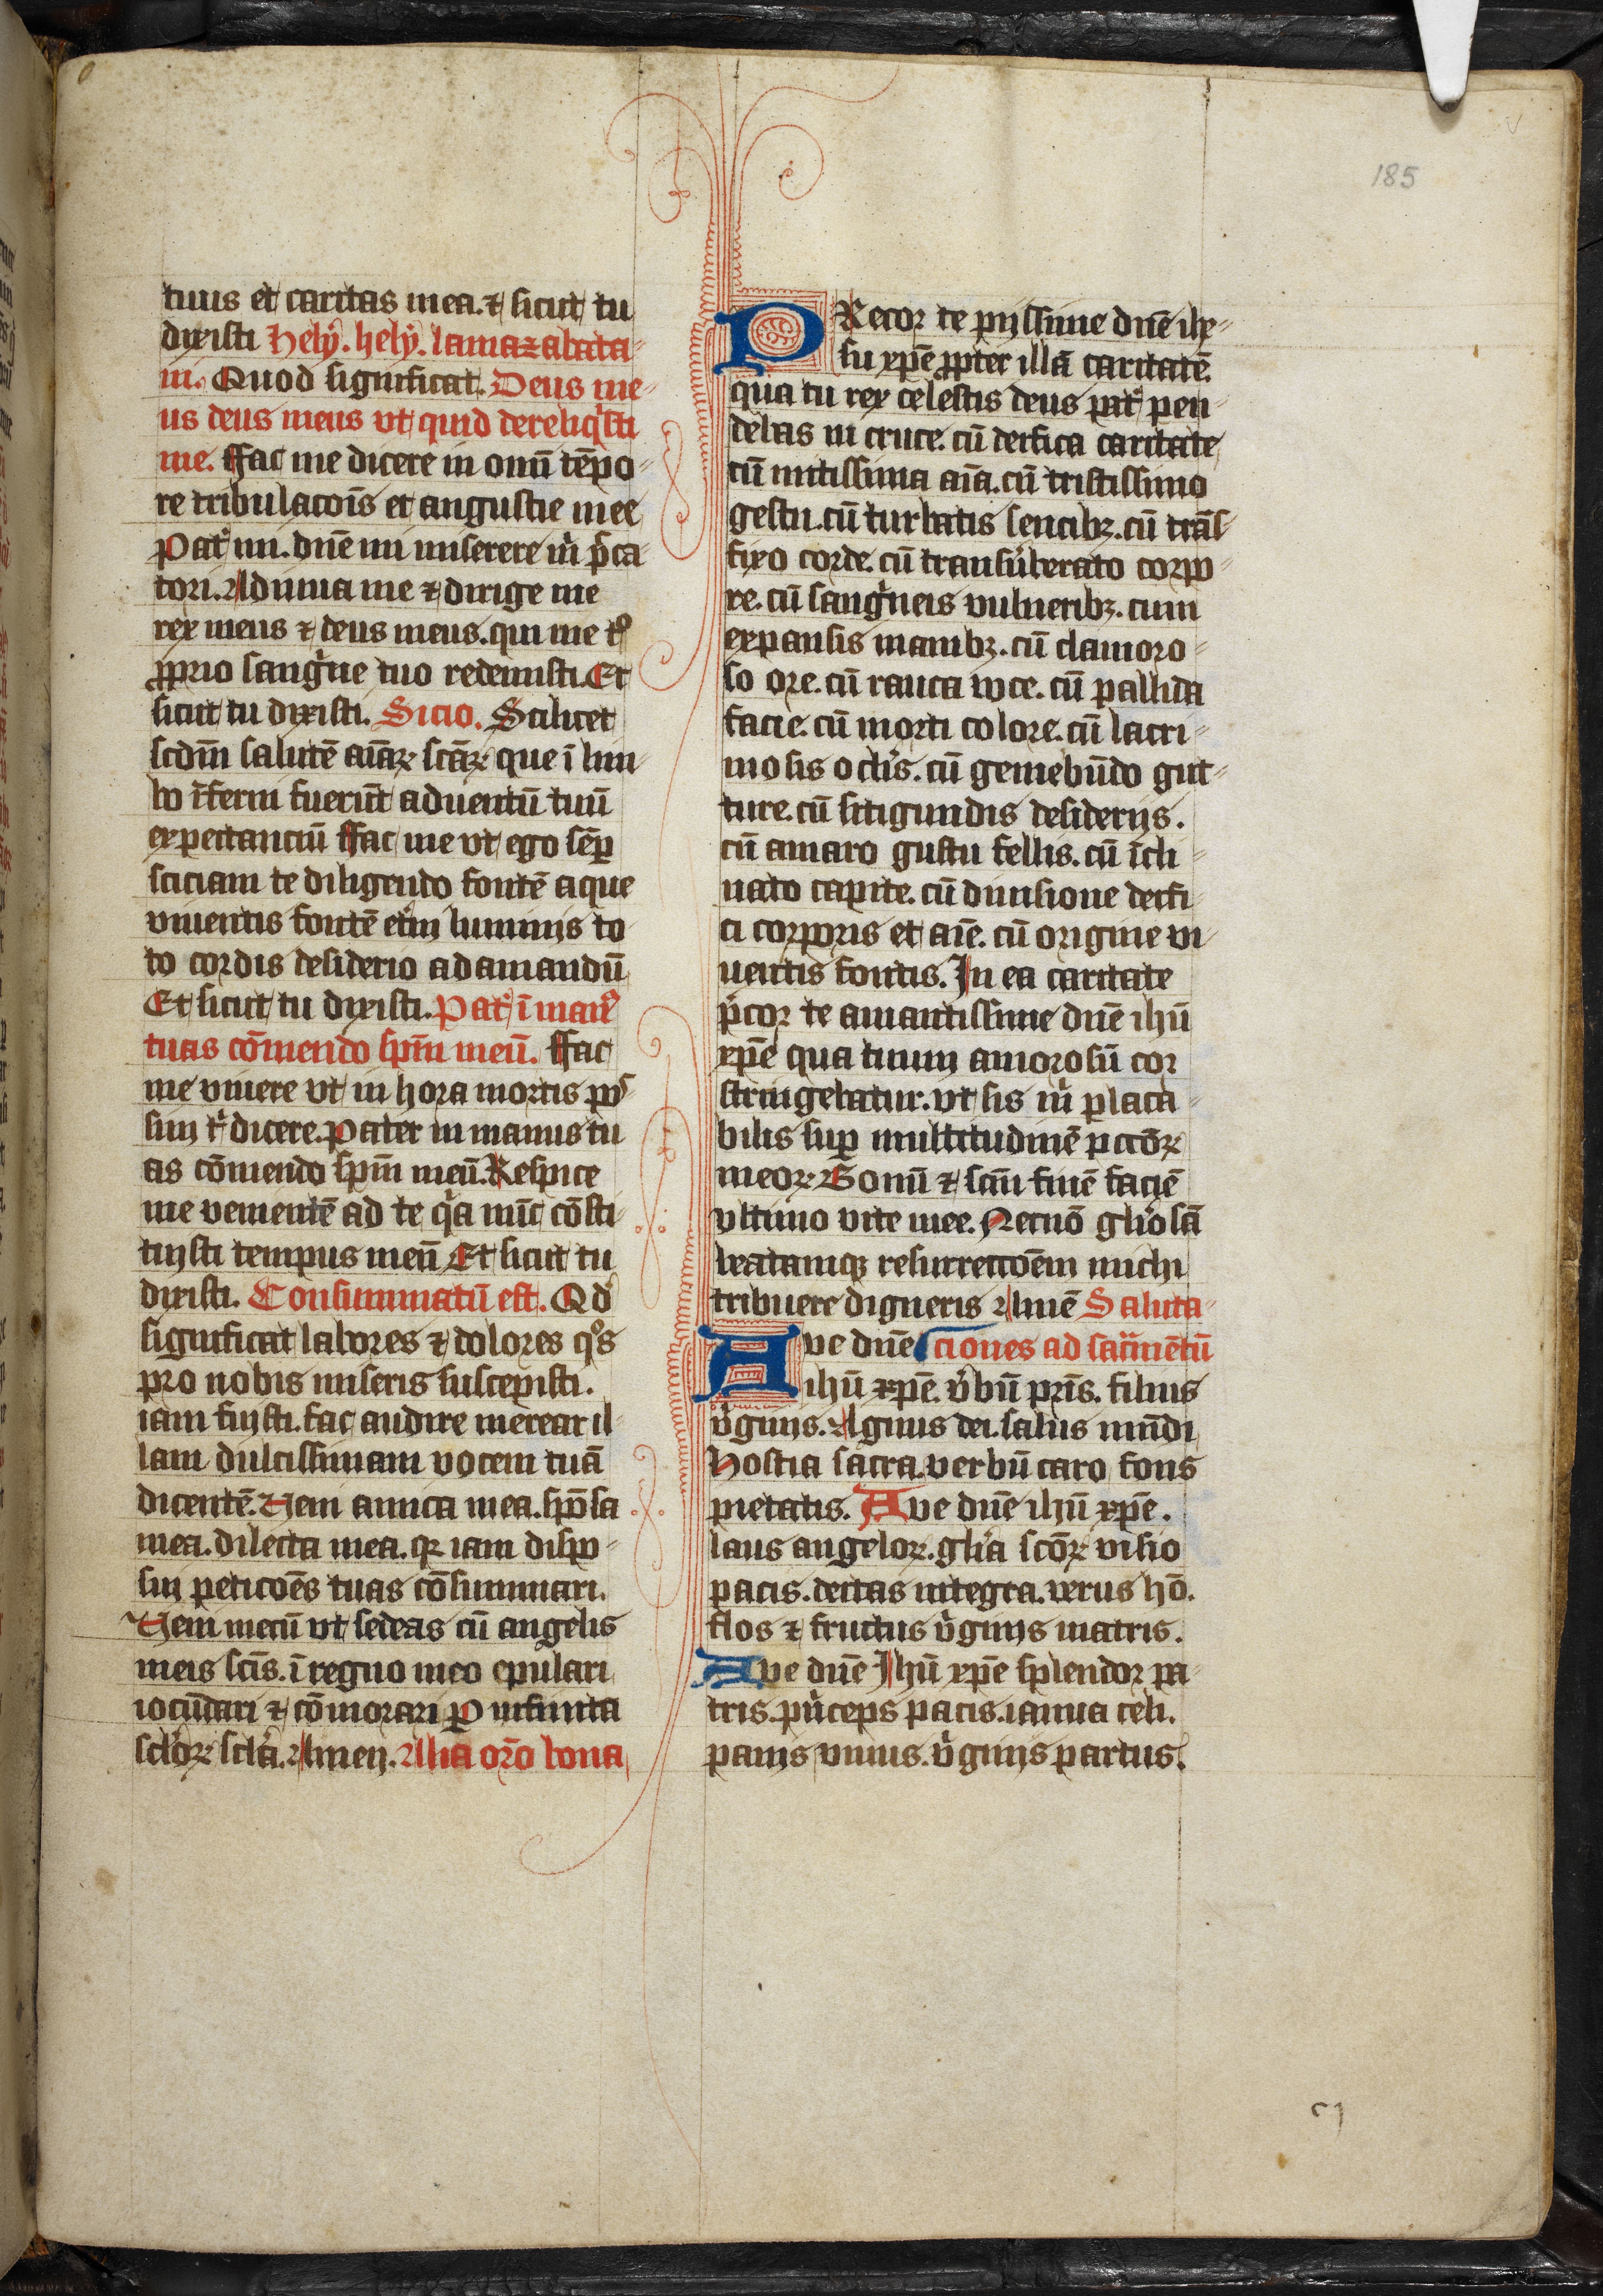 185
tuus et caritas mea. ⁊ sicut tu
dixisti hely. hely. lamazabata-
ni. Quod significat. Deus me-
us deus meus vt quid dereliqͥsti
me. ffac me dicere in om̄i tēpo-
re tribulacōis et angustie mee
Pat̉ mi. dn̄e mi miserere mͥ p̄ca-
tori. Adiuua me ⁊ dirige me
rex meus ⁊ deus meus. qui me tͦ
ꝓprio sangͥne tuo redemisti. Et
sicut tu dixisti. Sicio. Scilicet
scdm̄ salutē aīaꝝ scāꝝ que ī lim-
bo īferni fuerūt aduentū tuū
expectanciū ffac me vt ego sēꝑ
sciciam te diligendo fontē aque
viuentis fontē et̉ni luminis to-
to cordis desiderio adamandū
Et sicut tu dixisti. Pat̉ ī manꝰ
tuas cōmendo spm̄ meū. ffac
me viuere vt in hora mortis pos-
sim tͥ dicere. Pater in manus tu-
as cōmendo spm̄ meū. Respice
me venientē ad te qͥa nūc cōsti-
tuisti tempus meū Et sicut tu
dixisti. Consummatū est. Qd̉
significat labores ⁊ dolores qͦs
pro nobis miseris suscepisti.
iam finisti. fac audire merear il-
lam dulcissimam vocem tuā
dicentē. Veni amica mea. spōsa
mea. dilecta mea. qꝛ iam dispo-
sui peticōēs tuas cōsummari.
Veni mecū vt sedeas cū angelis
meis scīs. ī regno meo epulari
iocūdari ⁊ cōmorari ꝑ infinita
sclōꝝ scla̓. Amen. Alia oro̅ bona
PRecor te pijssime dn̄e ihe-
su xpē ꝓpter illā caritatē
qua tu rex celestis deus pat̉ pen-
debas in cruce. cū deifica caritate
cū mitissima aīa. cū tristissimo
gestu. cū turbatis sencibꝫ. cū trās-
fixo corde. cū transu̓berato corpo-
re. cū sangͥneis vulneribꝫ. cum
expansis manibꝫ. cū clamoro-
so ore. cū rauca voce. cū pallida
facie. cū morti colore. cū lacri-
mosis oclis̓. cū gemebūdo gut-
ture. cū sitigundis desiderijs.
cū amaro gustu fellis. cū īcli-
nato capite. cū diuisione deifi-
ci corporis et aīe. cū origine vi-
uentis fontis. In ea caritate
p̄cor te amantissime dn̄e ihū
xpē qua tuum amorosū cor
stringebatur. vt sis mͥ placa-
bilis suꝑ multitudinē pctōꝝ
meoꝝ Bonū ⁊ scm̄ finē faciē
vltimo vite mee. Necnō gl̓iosā
beatamqꝫ resurrectōēm michi
tribuere digneris Amē Saluta-
ciones ad sac̓mētū
Aue dn̄e
ihū xpē. v̓bū pr̄is. filius
v̓ginis. Agnus dei. salus mūdi
Hostia sacra. verbū caro fons
pietatis. Aue dn̄e ihū xpē.
laus angeloꝝ. gl̓ia scōꝝ visio
pacis. deitas integra. verus hō.
flos ⁊ fructus v̓ginis matris.
Aue dn̄e Ihū xpē splendor pa-
tris. pͥnceps pacis. ianua celi.
panis viuus. v̓ginis partus.